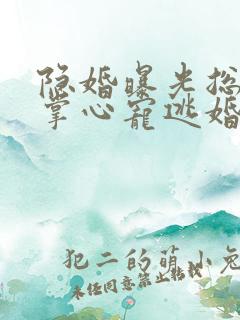 隐婚曝光总
掌心宠逃婚
犯二的萌小兔
未经同意禁止转载